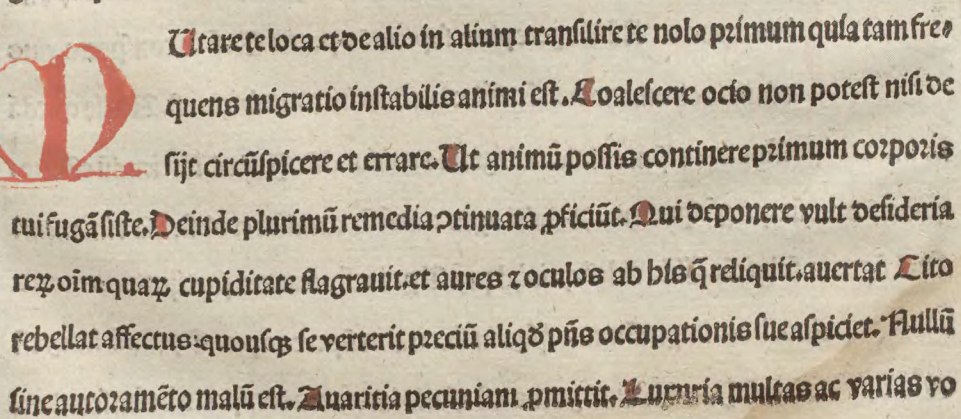 MUtare te loca et de alio in alium tranſilire te nolo primum quia tam fre⸗
quens migratio inſtabilis animi eſt. Coaleſcere ocio non poteſt niſi de
ſijt circūſpicere et errare. Ut animū poſſis continere primum corporis
tui fugā ſiſte. Deinde plurimū remedia ꝯtinuata ꝓficiūt. Qui deponere vult deſideria
reꝝ oīm quaꝝ cupiditate flagrauit. et aures ⁊ oculos ab his q̄ reliquit. auertat Cito
rebellat affectus: quouſqꝫ ſe verterit preciū aliqd̛ pn̄s occupationis ſue aſpiciet. Nullū
ſine autoramēto malū eſt. Auaritia pecuniam ꝓmittit. Luxuria multas ac varias vo